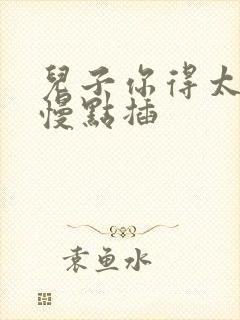 兒子你得太
慢點插
袁魚水